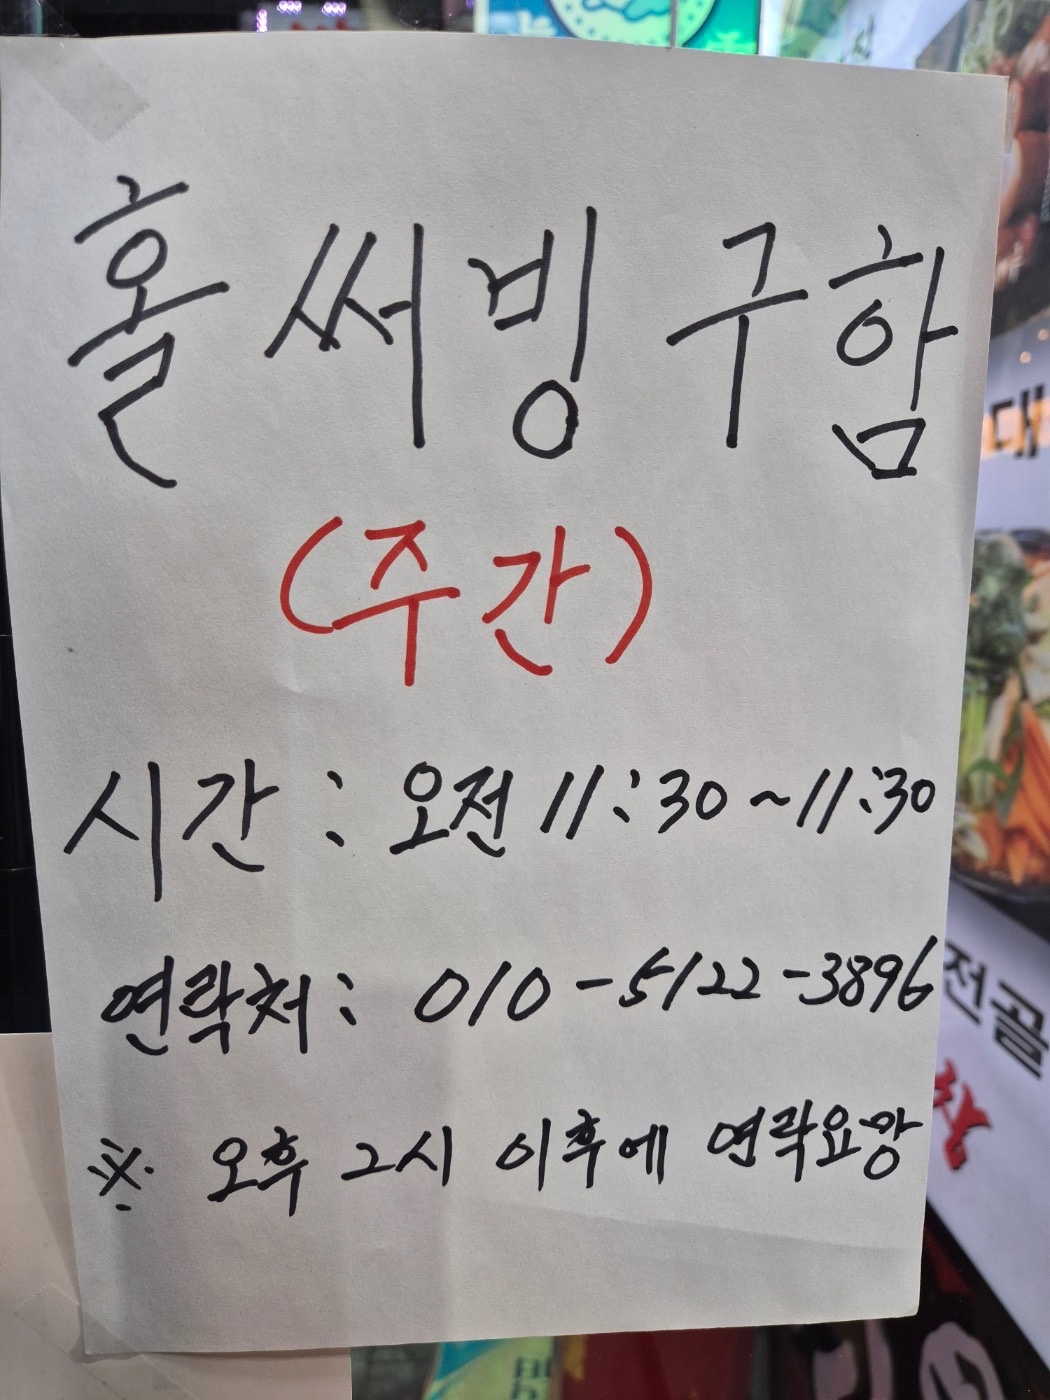 홀 써빙 구함
(주간)
시간 : 오전 11:30 ~ 11:30
연락처 : 010-5122-3896
※ 오후 2시 이후에 연락요망
대
전골